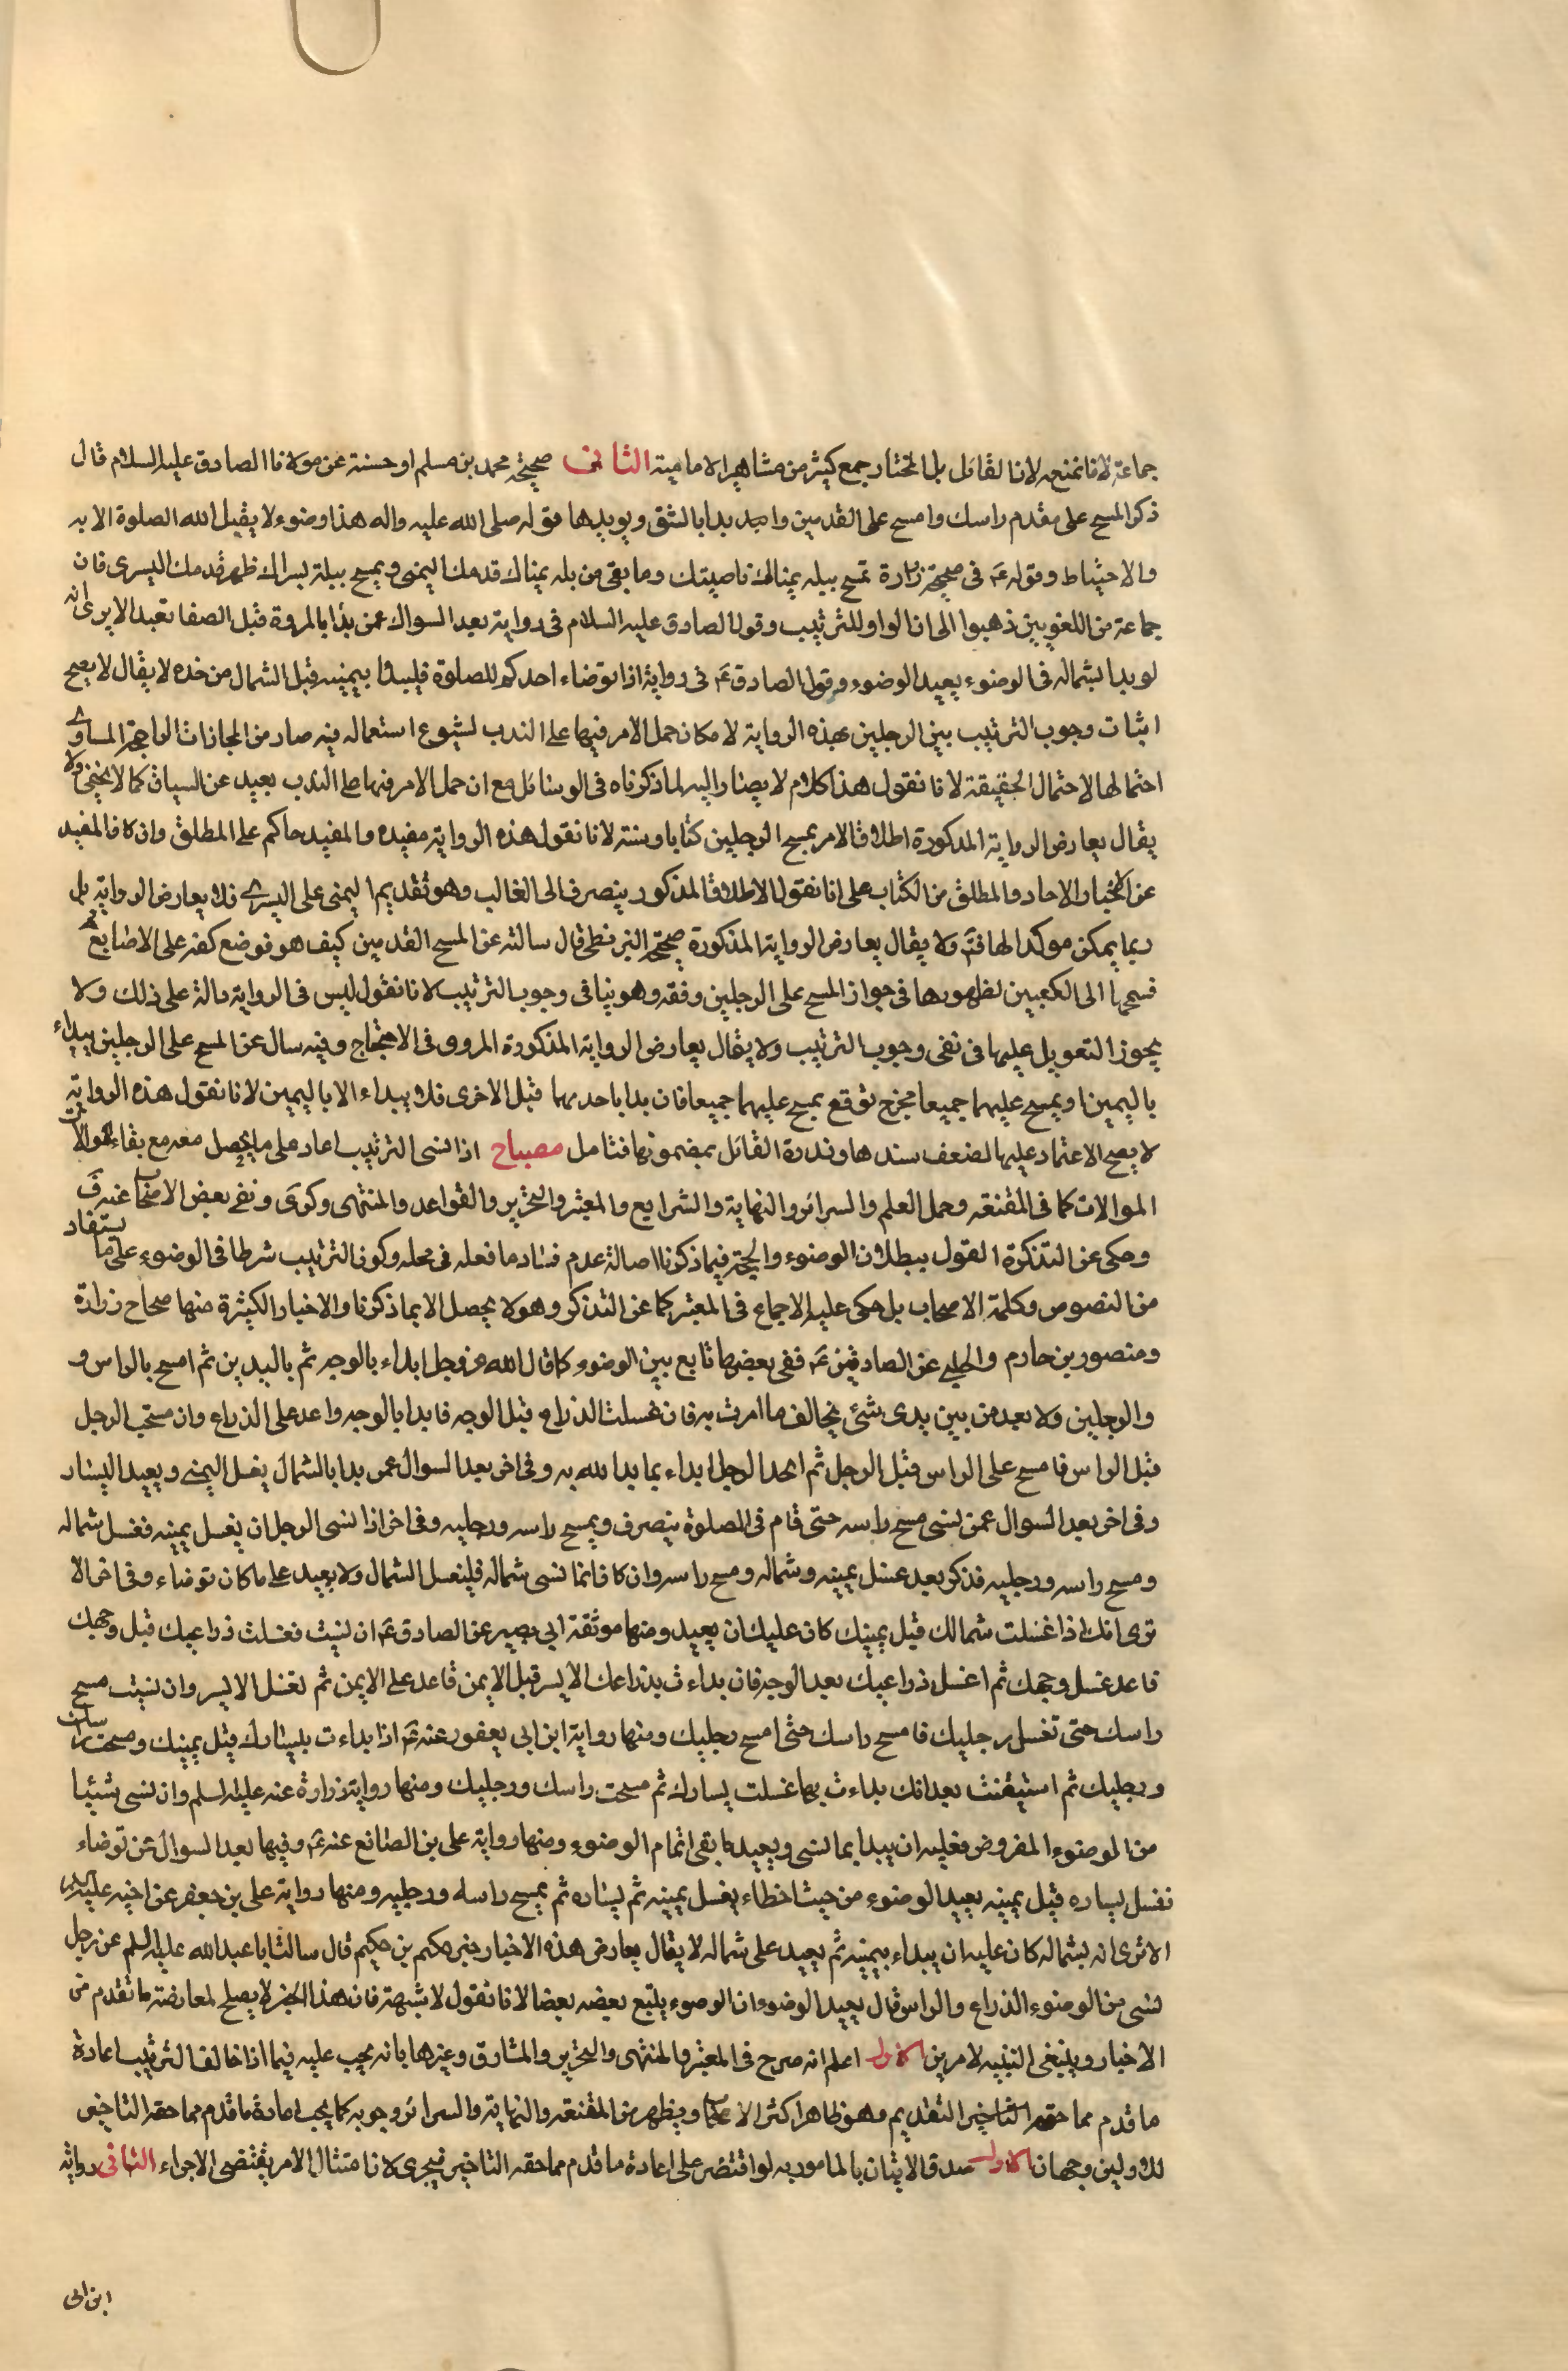 جماعة لانا نمنعه لانا القائل بل المختار جمع كثير من مشاهير الامامية الثانى صحيحة محمد بن مسلم او حسنة عن مولانا الصادق عليه السلام قال
ذكر المسح على مقدم راسك وامسح على القدمين وابد بدا بالشق ويويدها قوله صلى الله عليه واله هذا وضوء لا يقبل الله الصلوة الا به
والاحتياط وقوله ع فى صحيحة زرارة تمسح ببلة يمناك ناصيتك وما بقى من بله يمناك قدمك اليمنى ويمسح ببلة يسراك ظهر قدمك اليسرى فان
جماعة من اللغويين ذهبوا الى ان الواو للترتيب وقول الصادق عليه السلام فى رواية بعد السوال عمن بدا بالمروة قبل الصفا تعبد الا يرى انه
لو بدا بشماله فى الوضوء يعيد الوضوء وقول الصادق ع فى رواية اذا توضاء احدكم للصلوة فليبدا بيمينه قبل الشمال من خده لا يقال لا يصح
اثبات وجوب الترتيب بين الرجلين بهذه الرواية لامكان حمل الامر فيها على الندب لشيوع استعماله فيه صار من المجازات الراجحة المساوى
احتمالها لاحتمال الحقيقة لانا نقول هذا كلام لا يصار اليه لما ذكرناه فى الوسائل مع ان حمل الامر فيها على الندب بعيد عن السياق كما لا يخفى ولا
يقال يعارض الرواية المذكورة اطلاق الامر بمسح الرجلين كتابا وسنة لانا نقول هذه الرواية مقيده والمقيد حاكم على المطلق وان كان المقيد
عن الاخبار الاحاد والمطلق من الكتاب على انا نقول الاطلاق المذكور ينصرف الى الغالب وهو تقديم اليمنى على اليسرى فلا يعارض الرواية بل
ربما يمكن موكدا لها فتم ولا يقال يعارض الرواية المذكورة صحيحة البزنطى قال سالته عن المسح القدمين كيف هو فوضع كفه على الاصابع ثم
فمسحها الى الكعبين لظهورها فى جواز المسح على الرجلين وفقه وهو ينافى وجوب الترتيب لانا نقول ليس فى الرواية دالة على ذلك ولا
يجوز التعويل عليها فى نفى وجوب الترتيب ولا يقال يعارض الرواية المذكورة المروى فى الاحتجاج وفيه سال عن المسح على الرجلين يبداء
باليمين او يمسح عليهما جميعا فخرج توقع يمسح عليهما جميعا فان بدا باحدهما قبل الاخرى فلا يبداء الا باليمين لانا نقول هذه الرواية
لا يصح الاعتماد عليها لضعف سندها وندرة القائل بمضمونها فتامل مصباح اذا نسى الترتيب اعاد على ما يحصل معه مع بقاء الموالات
الموالات كما فى المقنعه وحمل العلم والسرائر والنهاية والشرايع والمعتبر والتحرير والقواعد والمنتهى وكرى ونفى بعض الاصحاب عنه ق
وحكى عن التذكرة القول ببطلان الوضوء والحجة فيما ذكرنا اصالة عدم فساد ما فعله فى محله وكون الترتيب شرطا فى الوضوء على ما يستفاد
من النصوص وكلمة الاصحاب بل حكى عليه الاجماع فى المعتبر كما عن التذكر وهو لا يحصل الا بما ذكرنا والاخبار الكثيرة منها صحاح زرارة
ومنصور بن حازم والحلبى عن الصادقين ع ففى بعضها تابع بين الوضوء كما قال الله عز وجل ابداء بالوجه ثم باليدين ثم امسح بالراس و
والرجلين ولا بعد من بين يدى شئ يخالف ما امرت به فان غسلت الذراع قبل الوجه فابدا بالوجه واعد على الذراع وان مسحت الرجل
قبل الراس فامسح على الراس قبل الرجل ثم اعد الرجل ابداء بما بدا لله به وفى اخر بعد السوال عمن بدا بالشمال يغسل اليمنى ويعيد اليسار
وفى اخر بعد السوال عمن نسى مسح راسه حتى قام فى الصلوة ينصرف ويمسح راسه ورجليه وفى اخر اذا نسى الرجل ان يغسل يمينه فغسل شماله
ومسح راسه ورجليه فذكر بعيد غسل يمينه وشماله ومسح راسه وان كان انما نسى شماله فليغسل الشمال ولا يعيد على ما كان توضاء وفى اخر الا
ترى انك اذا غسلت شمالك قبل يمينك كان عليك ان يعيد ومنها موثقة ابى بصير عن الصادق ع ان نسيت فغسلت ذراعيك قبل وجهك
فاعد غسل وجهك ثم اغسل ذراعيك بعد الوجه فان بداءت بذراعك الايسر قبل الايمن فاعد على الايمن ثم تغسل الايسر وان نسيت مسح
راسك حتى تغسل رجليك فامسح راسك حتى امسح رجليك ومنها رواية ابن ابى يعفور عنه ع اذا بداءت بيسارك قبل يمينك ومسحت راسك
ورجليك ثم استيقنت بعد انك بداءت بها غسلت يسارك ثم مسحت راسك ورجليك ومنها رواية زرارة عنه عليه السلم وان نسى شيئا
من الوضوء المفروض فعليه ان يبدا بما نسى ويعيد ما بقى اتمام الوضوء ومنها رواية على بن الصانع عنه ع وفيها بعد السوال عن توضاء
تغسل يساره قبل يمينه يعيد الوضوء من حيث اخطاء يغسل يمينه ثم يساره ثم يمسح راسه ورجليه ومنها رواية على بن جعفر عن اخيه عليه السلم
الا ترى انه بشماله كان عليه ان يبداء بيمينه ثم يعيد على شماله لا يقال يعارض هذه الاخبار خبر حكم بن حكيم قال سالت ابا عبد الله عليه السلم عن رجل
نسى من الوضوء الذراع والراس قال يعيد الوضوء ان الوضوء يتبع بعضه بعضا لانا نقول لا شبهة فان هذا الخبر لا يصلح لمعارضة ما تقدم من
الاخبار وينبغى التنبيه لامرين الاول اعلم انه صرح فى المعتبر والمنتهى والتحرير والمشارق وغيرها بانه يجب عليه فيما اذا خالف الترتيب اعادة
ما قدم مما حقه التاخير التقديم وهو ظاهر اكثر الاصحاب ويظهر من المقنعه والنهاية والسرائر وجوبه كما يجب اعادة ما قدم مما حقه التاخير
للاولين وجهان الاول صدق الاتيان بالمامور به لو اقتصر على اعادة ما قدم مما حقه التاخير فيجرى لان امتثال الامر يقتضى الاجراء الثانى رواية
ابن ابى